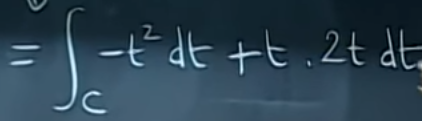 = ∫_C -t² dt + t . 2t dt